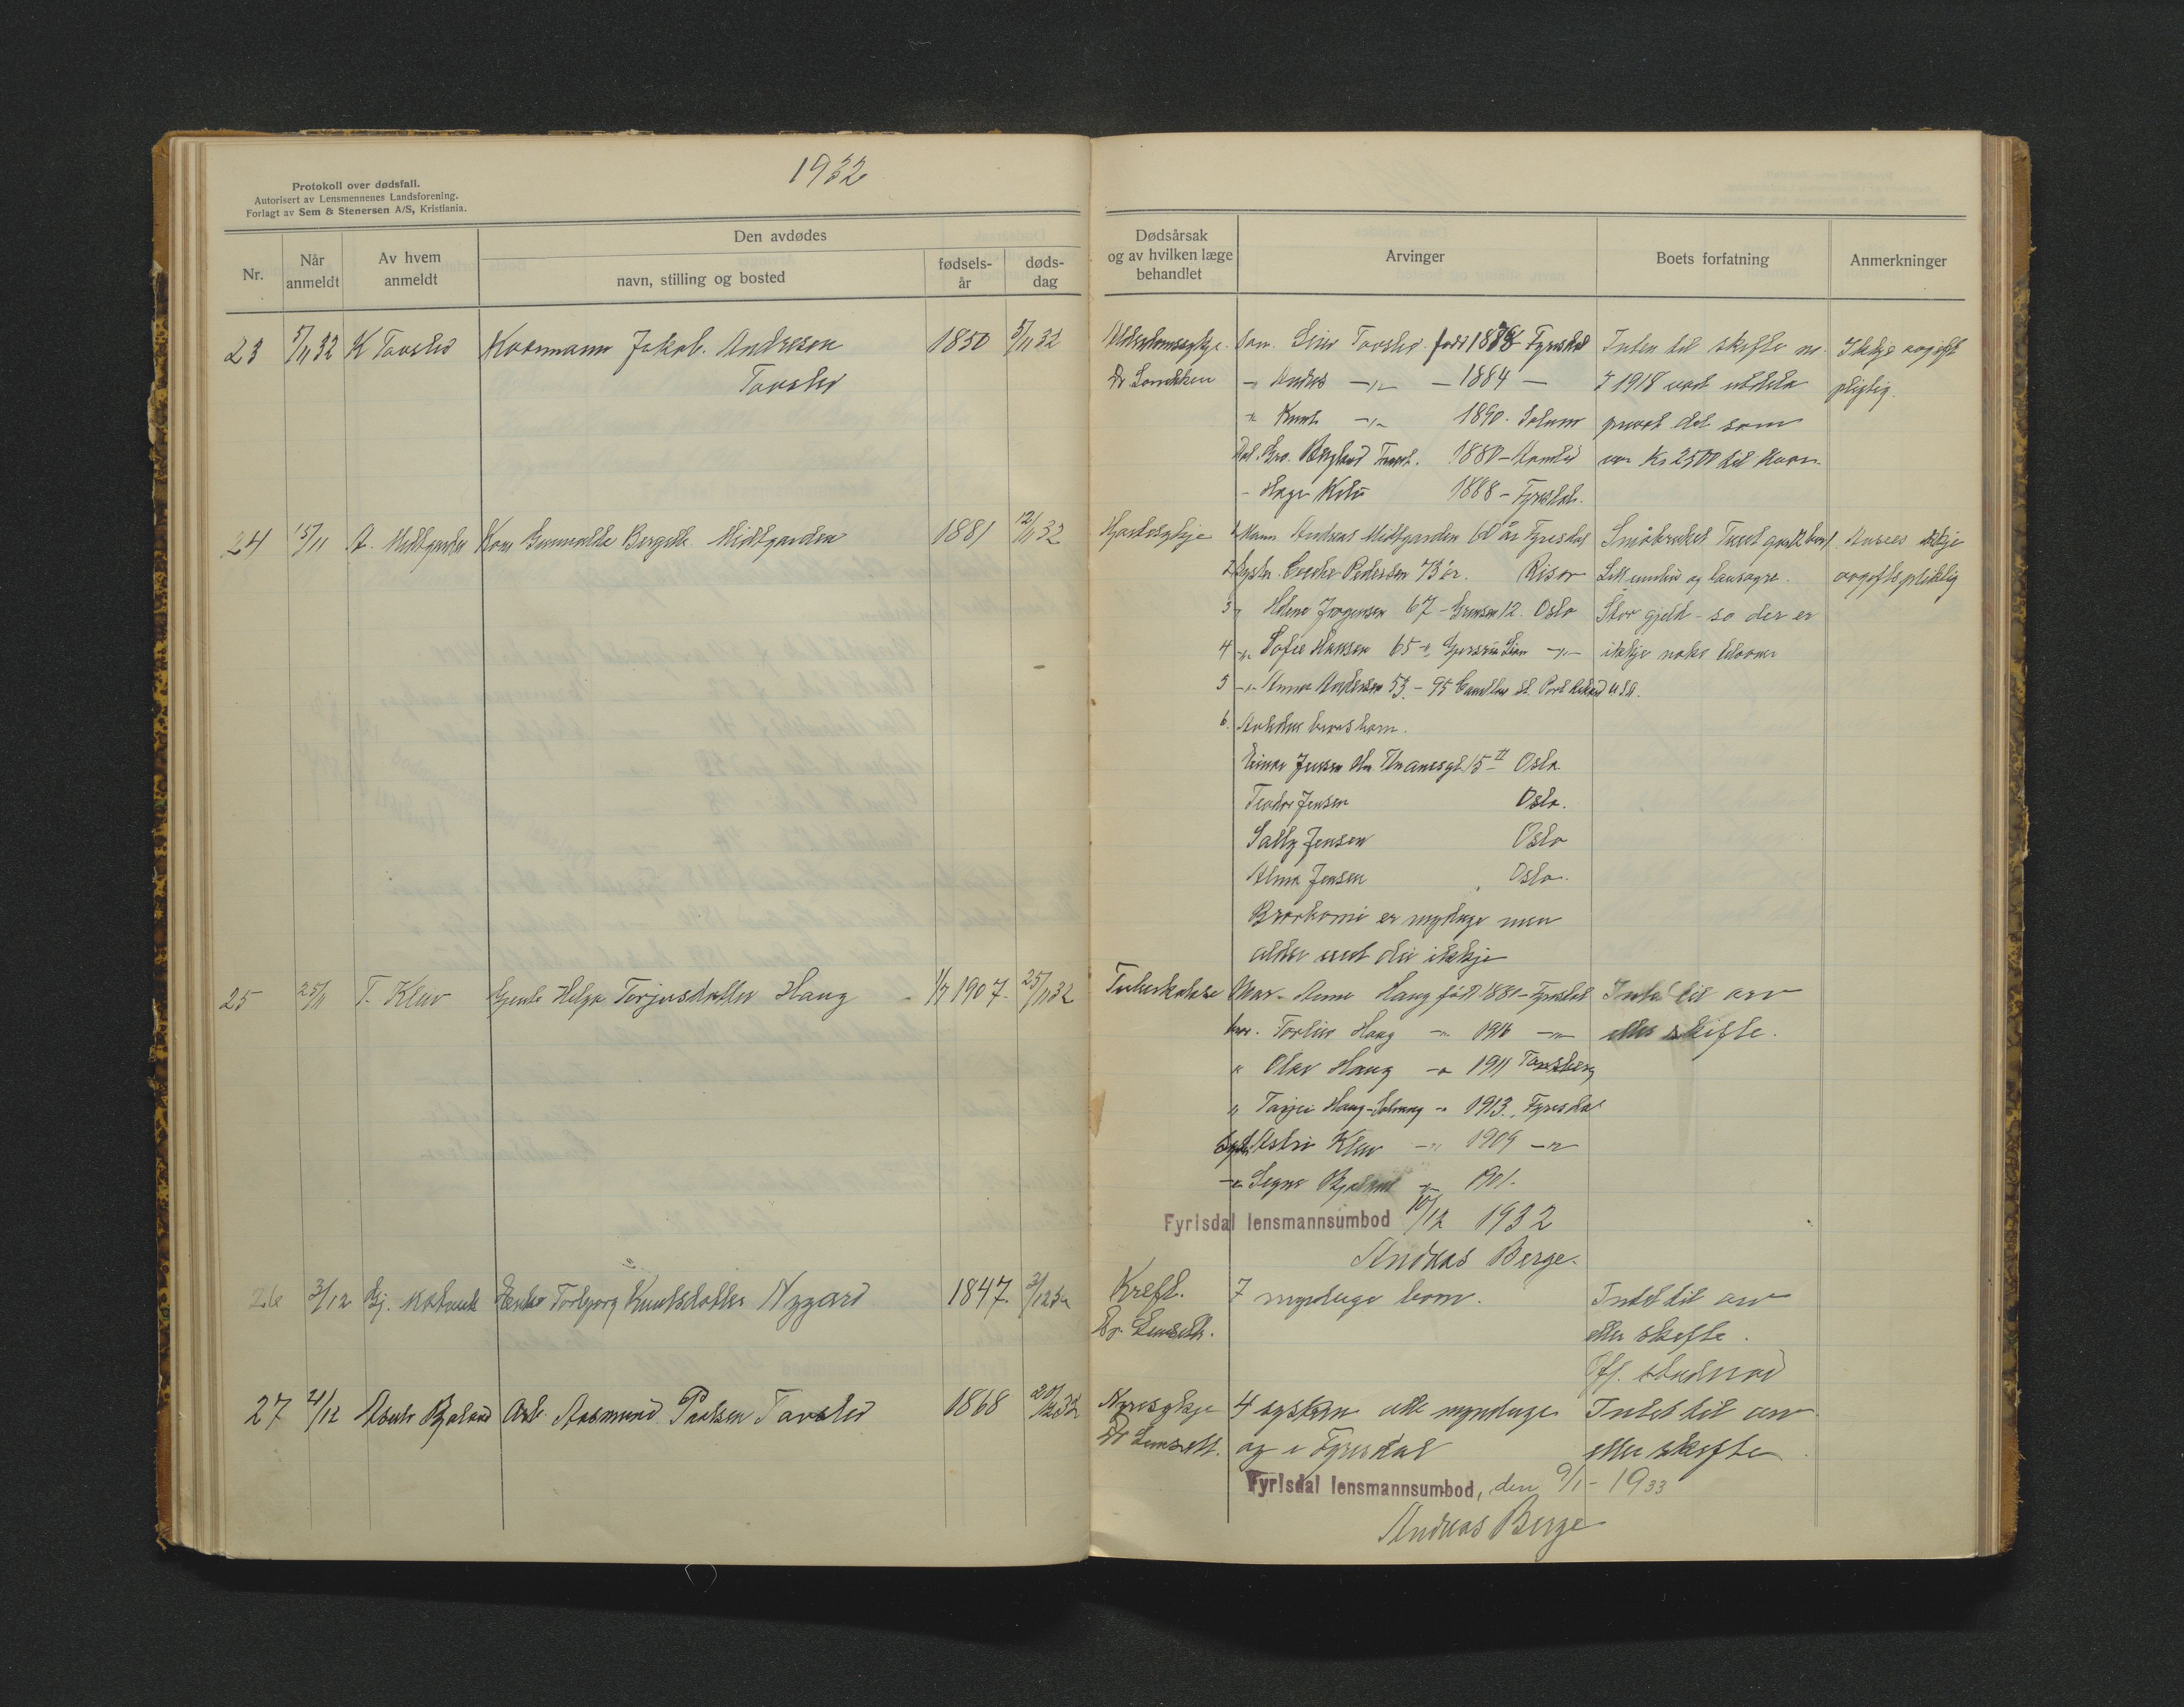 1932
Protokoll over dødsfall.
Autorisert av Lensmennenes Landsforening.
Forlagt av Sem & Stenersen A/S, Kristiania.
Nr.
Når anmeldt
Av hvem anmeldt
Den avdødes
navn, stilling og bosted
fødsels-
år
døds-
dag
Dødsårsak
og av hvilken læge
behandlet
Arvinger
Boets forfatning
Anmerkninger
23 5/11 32 K Tovslid Kaarmann Jakob Andresen 1850 5/11 32
Tovslid
Alderdomssykje
Dr
Son. Tovslid født Fyresdal
- Andres -"- - 1884 -
" Knut -"- 1890.
Dot. Gro. Bergland 1880 -
- 1888 - Fyresdal.
Inten til skifte
I 1918 vart utdela
privat det som
var Kr 2500 til
Ikkje avgift
pligtig.
24 15/11 A. Midtgarden Kone Bergitte Midtgarden 1881 12/11 32
Hjartesykje
1 Mann Andreas Midtgarden 60 år Fyresdal
2 Syster. Pedersen 73 år. Risør
3 " Helene Jørgensen 67 - Grensen 12. Oslo
4 -"- Sofie Hansen 65 -"-
5 -"- Anna Andersen 53. - 95 U.S.A.
6.
Einar Jensen 15 II Oslo.
Teodor Jensen Oslo.
Sally Jensen Oslo
Alma Jensen Oslo.
Brorborni er mynduge men
alder veit dei ikkje
Småbruket
Litt innbu og lausøyre.
Stor gjeld - so der er
ikkje noko tilovers
Ansees ikkje
avgiftspliktig
25 25/11 T. Kleiv Gjente Helga Torjusdotter Haug 1/7 1907. 25/11 32
Tuberkulose
Mor. Anne Haug født 1880 - Fyresdal
bror. Torleiv Haug -"- 1916 -"-
" Olav Haug -"- 1911 Tønsberg
" Tarjei Haug - 1913. Fyresdal
Syst. Astri Kleiv -"- 1909 -"-
-"- Signe Bjåland -"- 1901.
Intet til arv
eller skifte.
Fyrisdal lensmannsumbod 10/12 1932
Andreas Berge.
26 3/12 Gj. Enke Torbjørg Knutsdotter Nygard 1847. 3/12 32
Kreft.
Dr.
7 mynduge born.
Intet til arv
eller skifte.
27 21/12 Bjåland Arb. Aasmund Paalsen Tovslid 1868 20/12 32
Nyresykje
Dr
4 systken alle mynduge
og i Fyresdal
Intet til arv
eller skifte
Fyrisdal lensmannsumbod, den 9/1 - 1933
Andreas Berge